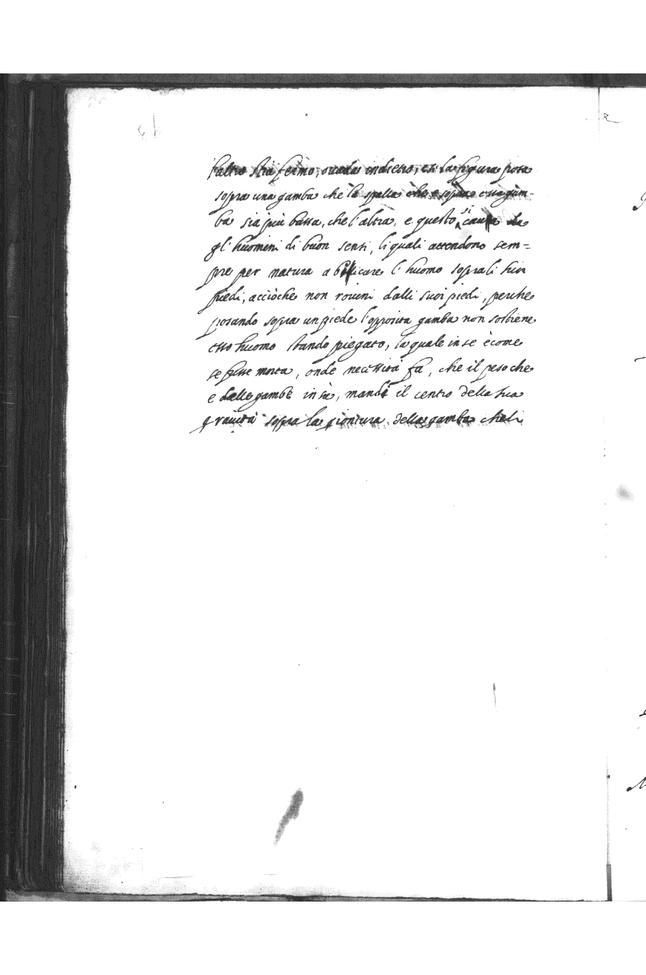 l'altro stia fermo, o uada indietro, et la figura posa
sopra una gamba che la spalla che è sopra essa gam-
ba sia più bassa, che l'altra, e questo si causa da
gl' huomini di buon senti, li quali attendono sem=
pre per natura a bilicare l' huomo sopra li suoi
piedi, acciòche non rouini dalli suoi piedi, perche
posando sopra un piede l'opposita gamba non sostiene
esso huomo stando piegato, la quale in se è come
se fusse morta, onde necessità fa, che il peso che
e dalle gambe in sù, mandi il centro della sua
grauità sopra la giontura della gamba che li